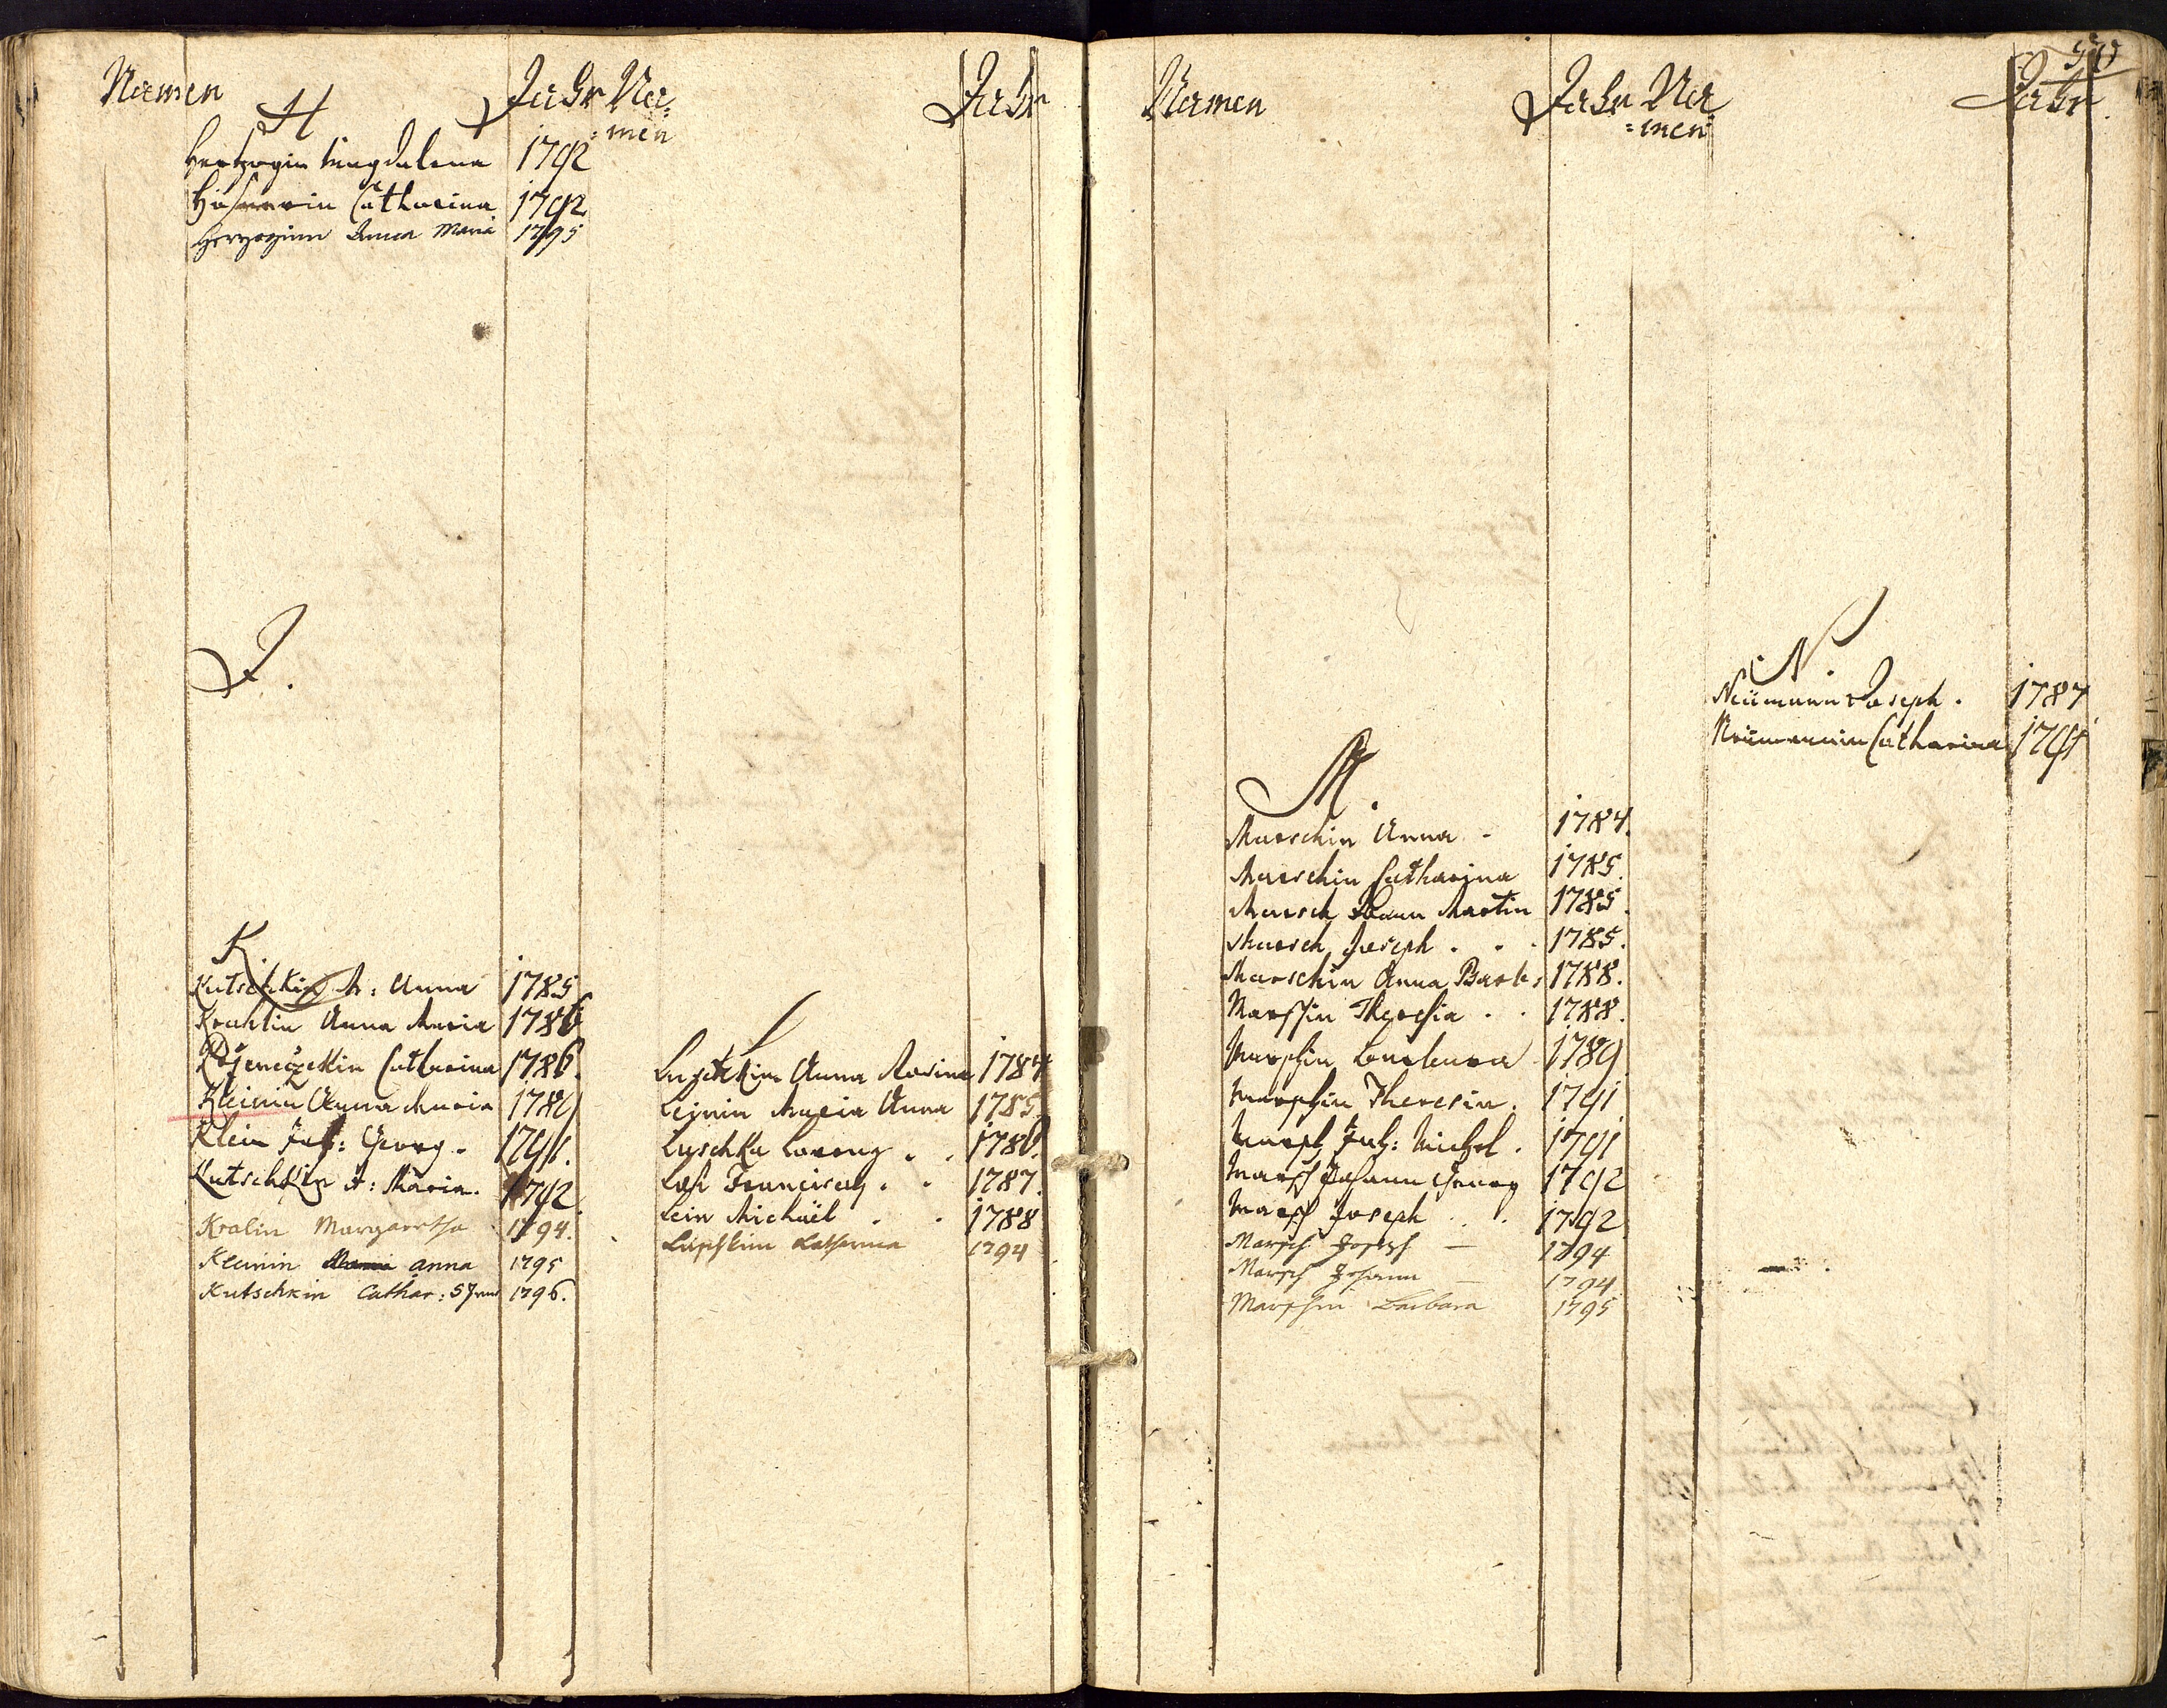 Namen
Jahr
H
Hertzogin Magdalena 1792
Catharina 1792
Herzoginn Anna Maria 1795
J.
K.
Kutschkin A: Anna 1785
Krahlin Anna Maria 1786
Catharina 1786.
Kleinin Anna Maria 1789
Klein Joh: Georg. 1791.
Kutschkin A: Maria. 1792
Kralin Margaretha 1794.
Kleinin Anna 1795
Kutschkin Cathar: 1796.
Na=
=men
Jahr
L
Anna Rosina 1784
Leinin Maria Anna 1785.
Luschka Lorentz . . 1786.
Franciscus . . 1787.
Lein Michaël . . 1788
Catharina 1794
Namen
Jahr
M.
Marschin Anna - 1784.
Marschin Catharina 1785.
Marsch Martin 1785.
Marsch Joseph . . . 1785.
Marschin Anna Barb: 1788.
Marschin Theresia . . 1788.
Marschin Barbara 1789
Marschin Theresia. 1791
Marsch Joh: Michel . 1791
Marsch Johann Georg 1792
Marsch Joseph . . . 1792
Marsch Joseph — 1794
Marsch Johann — 1794
Marschin Barbara 1795
Na
=men
Jahr
N.
Neümann Joseph . 1787
Neümannin Catharina 1791